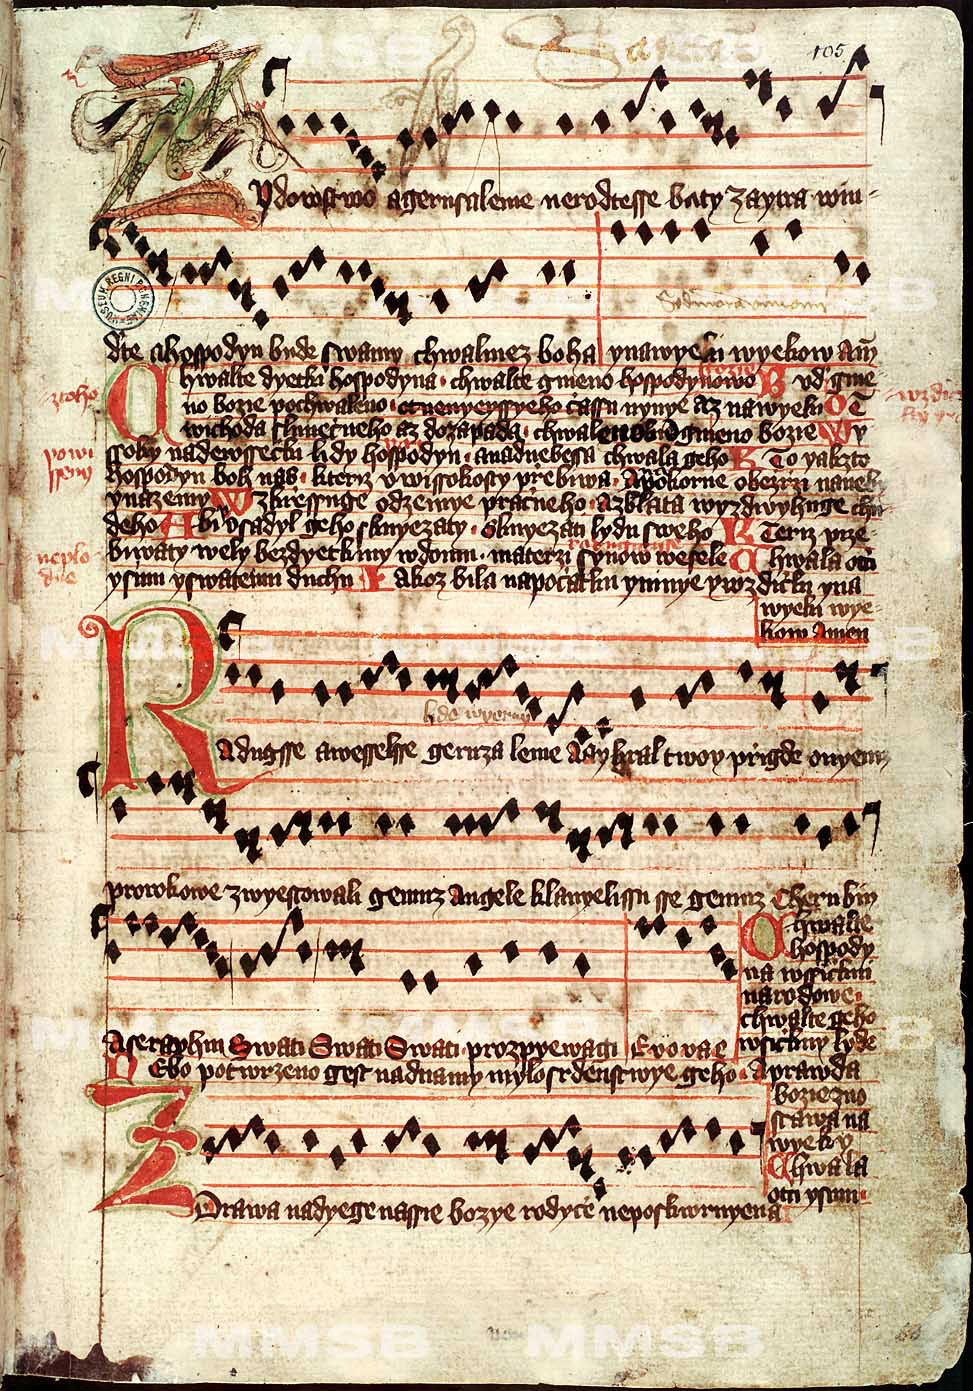 105
Zydowstwo agerusaleme nerodtesse baty zaytra win-
dete ahospodyn bude swamy chwalmez boha ynawyeki wyekow Am
Chwalte dyetki hospodyna chwalte gmeno hospodynowo B ud gme-
no bozie pochwaleno ctnenyeyssyeho cassu nynye az nawyeki OT
wichoda slunecneho az dozapada chwalenobud gmeno bozie Wy
ssoky nadewssecki lidy hospodyn anadnebessa chwala geho K To yakzto
hospodyn boh nas kterizv wissokosty przebiwa Apokorne obezrzi naneby
ynazemy Wzkressuge odzemye pracneho Azblata wyzdwyhuge chu
deho Aby osadyl geho sknyezaty Sknyezati lydu sweho K Terz prze-
biwaty wely bezdyetkiny wdomu materzi synow wesele Chwala otci
ysynu yswatemu duchu Kakoz bila napocatku ynynye ywzdicki yna
wyeki wye-
kow Amen
zroho
powi
sseny
neplo
dne
Radugsse awesselsse geruzaleme Anykral twoy prigde onyemz
prorokowe zwyestowali gemuz Angele klanyelissu sse gemuz Cherubin
Aseraphin Swati Swati Swati prozpyewagi Evovae
Chwalte
hospody
na wssickni
narodowe
chwalte geho
wsickny lyde
Nebo potwrzeno gest nadnamy mylosrdenstwye geho Aprawda
bozie zuo
stawa na
wyeky
Chwala
otci ysynu
Zdrawa nadyege nassie bozye rodyce neposkwrnyena
MUSEUM REGNI BOHEMIAE
MMSB